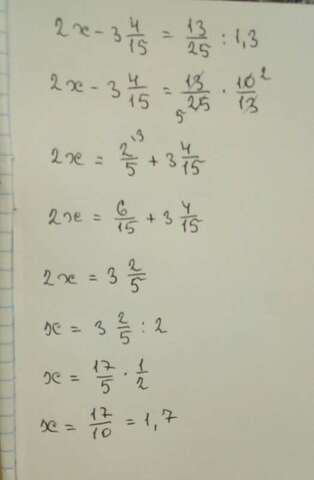 2x - 3 4/15 = 13/25 : 1,3
2x - 3 4/15 = 13/25 5 · 10/13 2
2x = 2/5 3 + 3 4/15
2x = 6/15 + 3 4/15
2x = 3 2/5
x = 3 2/5 : 2
x = 17/5 · 1/2
x = 17/10 = 1,7